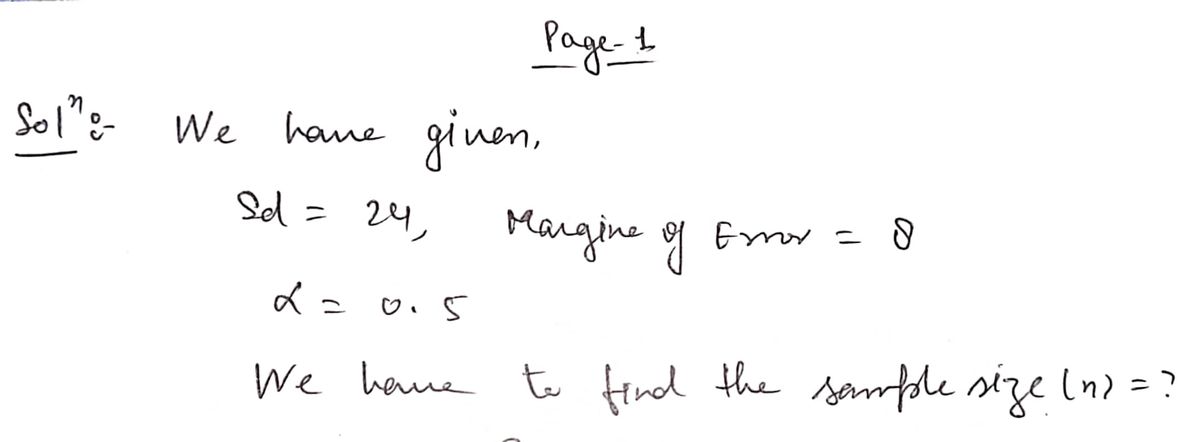 Page-1
Solⁿ:- We have given,
Sd = 24, Margine of Error = 8
α = 0.5
We have to find the sample size (n) = ?